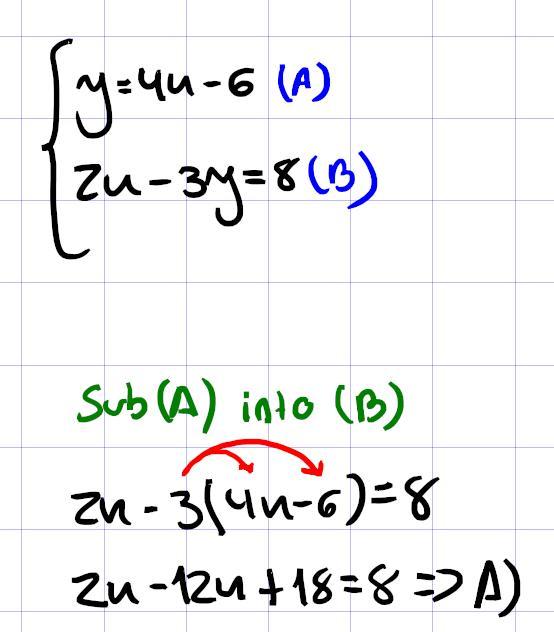 y=4u-6 (A)
2u-3y=8 (B)
Sub (A) into (B)
2u-3(4u-6)=8
2u-12u+18=8 => A)